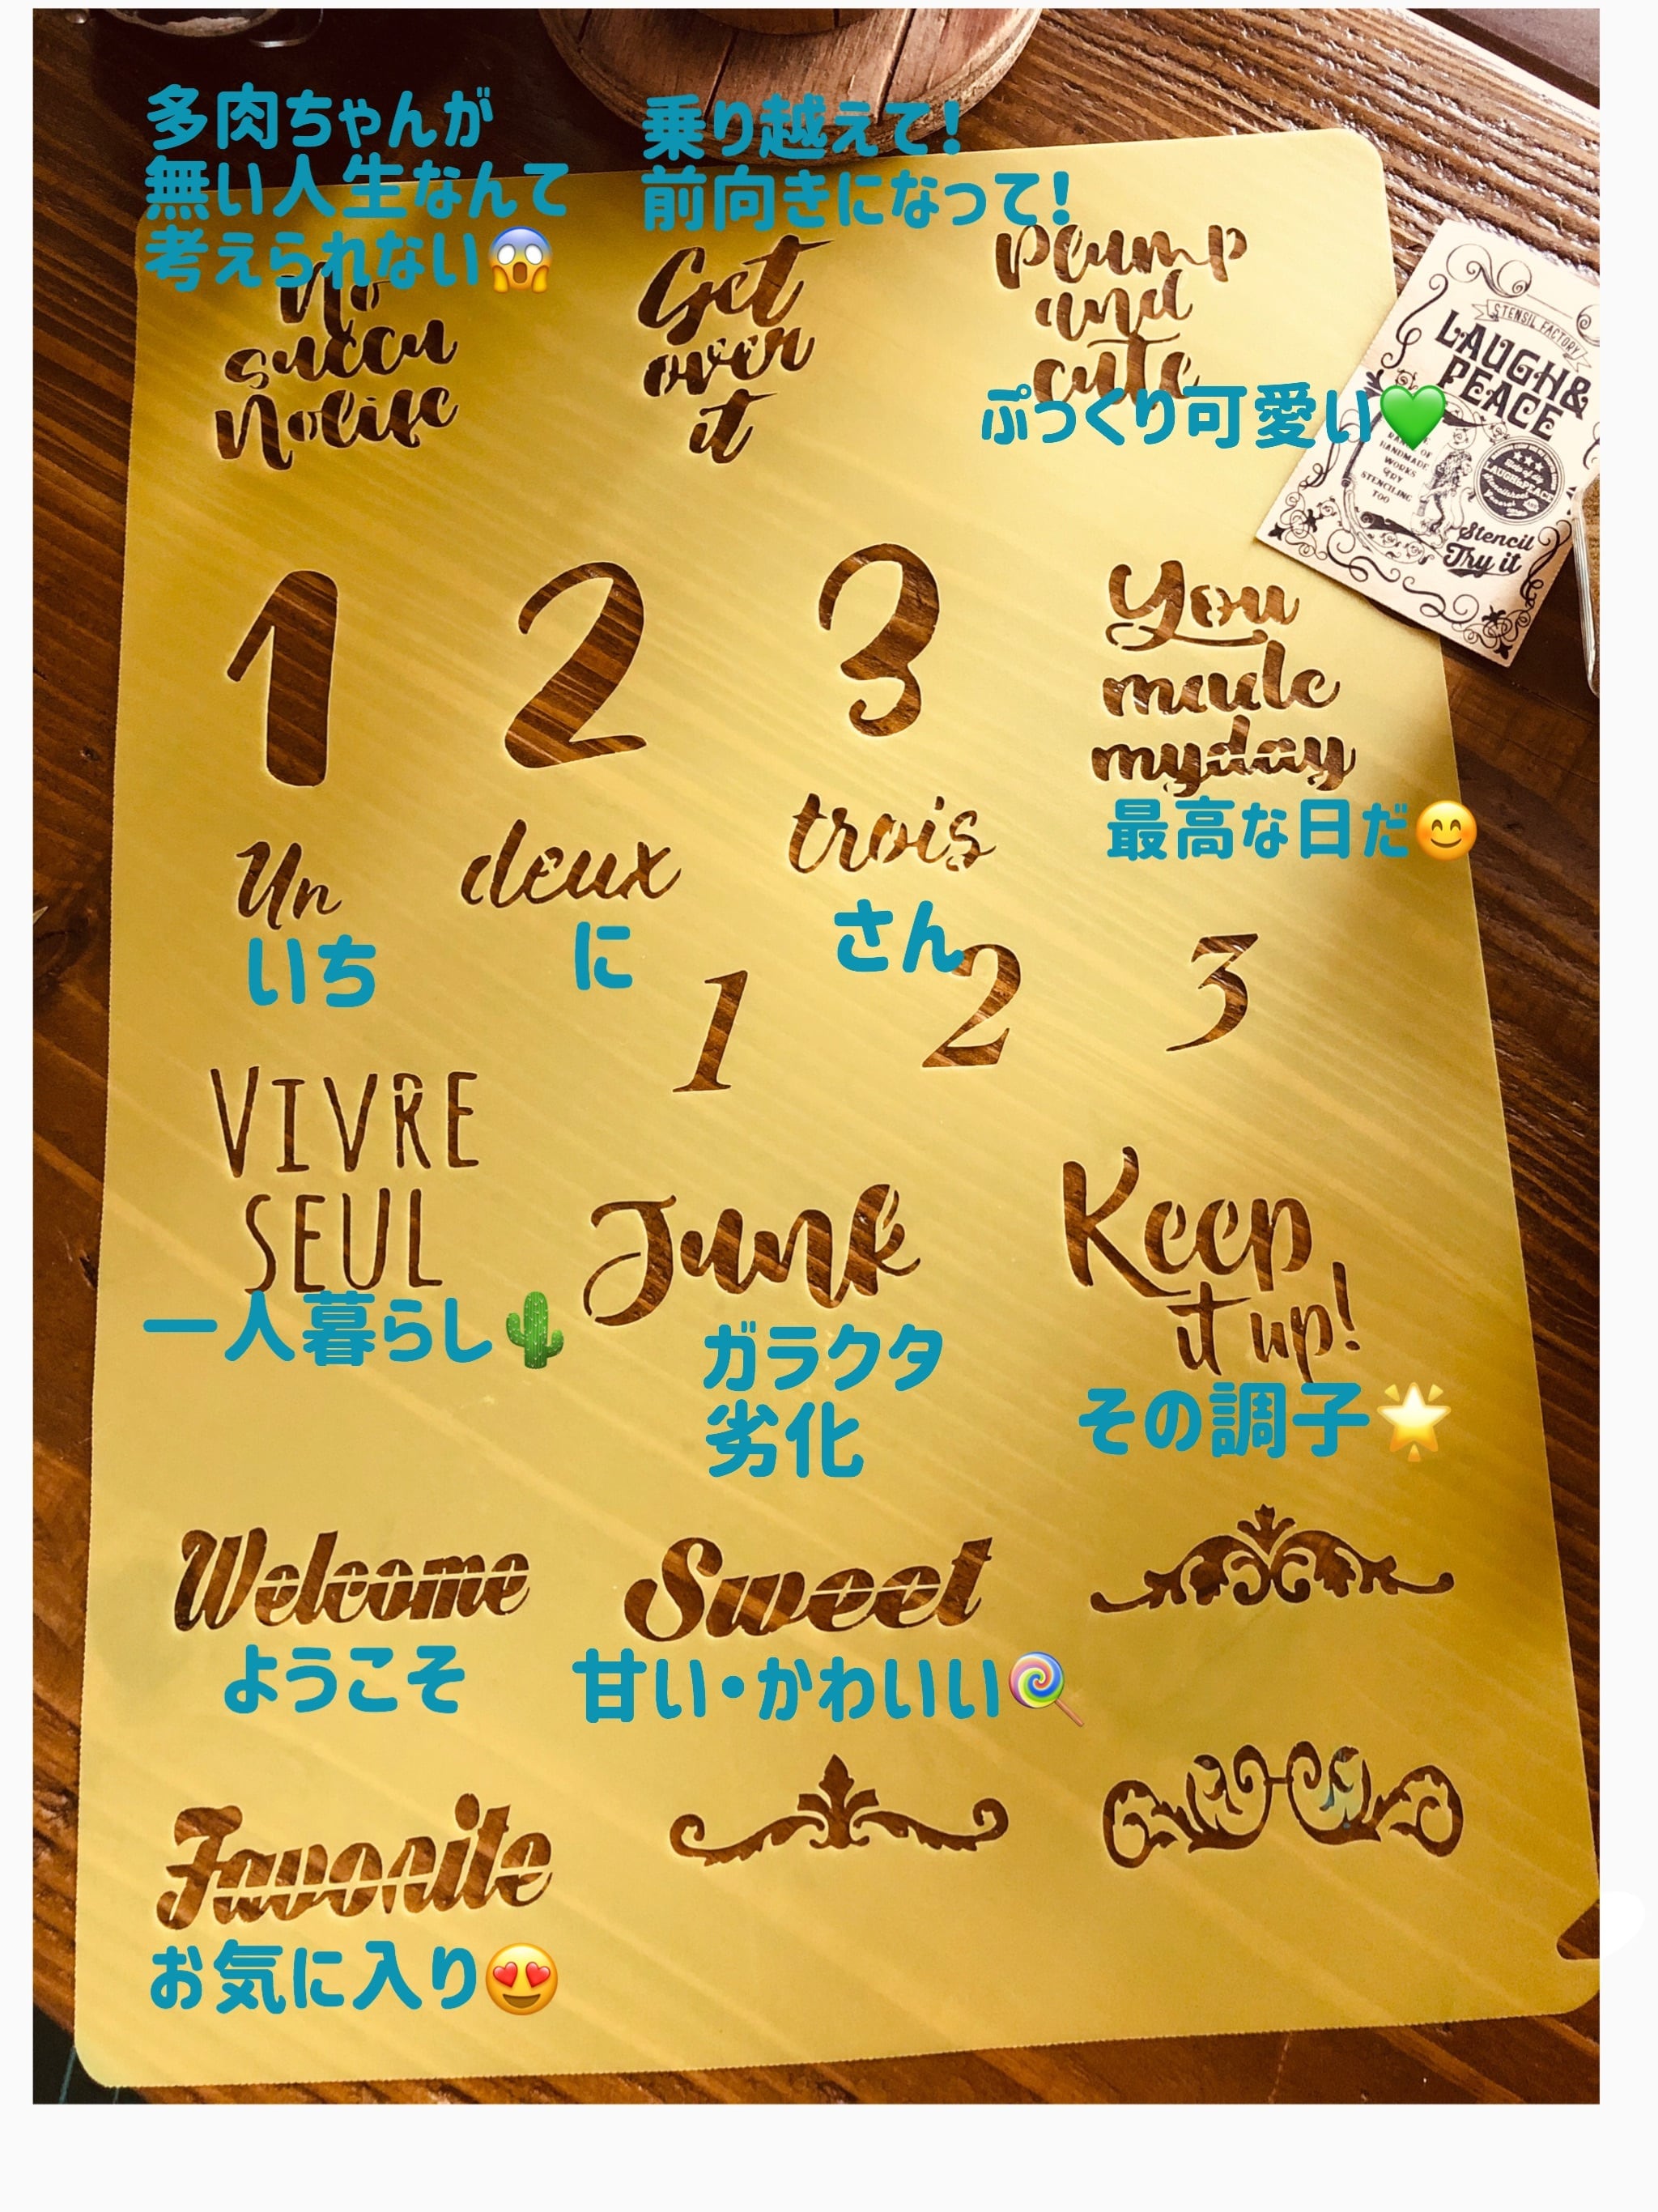 多肉ちゃんが
無い人生なんて
考えられない😱
No
succu
No life
乗り越えて!
前向きになって!
Get
over
it
Plump
and
cute
ぷっくり可愛い💚
STENSIL FACTORY
LAUGH&
PEACE
HANDMADE
WORKS
STENCILING
TOO
Stencil
Try it
1
2
3
You
made
my day
最高な日だ😊
Un
deux
trois
いち
に
さん
1
2
3
VIVRE
SEUL
一人暮らし🌵
Junk
ガラクタ
劣化
Keep
it up!
その調子🌟
Welcome
ようこそ
Sweet
甘い・かわいい🍭
Favorite
お気に入り😍